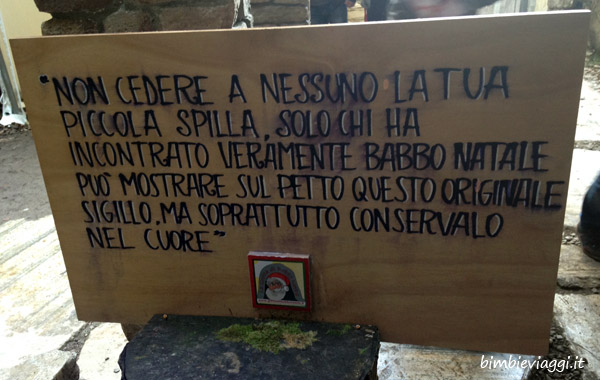 "NON CEDERE A NESSUNO LA TUA
PICCOLA SPILLA, SOLO CHI HA
INCONTRATO VERAMENTE BABBO NATALE
PUO' MOSTRARE SUL PETTO QUESTO ORIGINALE
SIGILLO, MA SOPRATTUTTO CONSERVALO
NEL CUORE"
bimbieviaggi.it